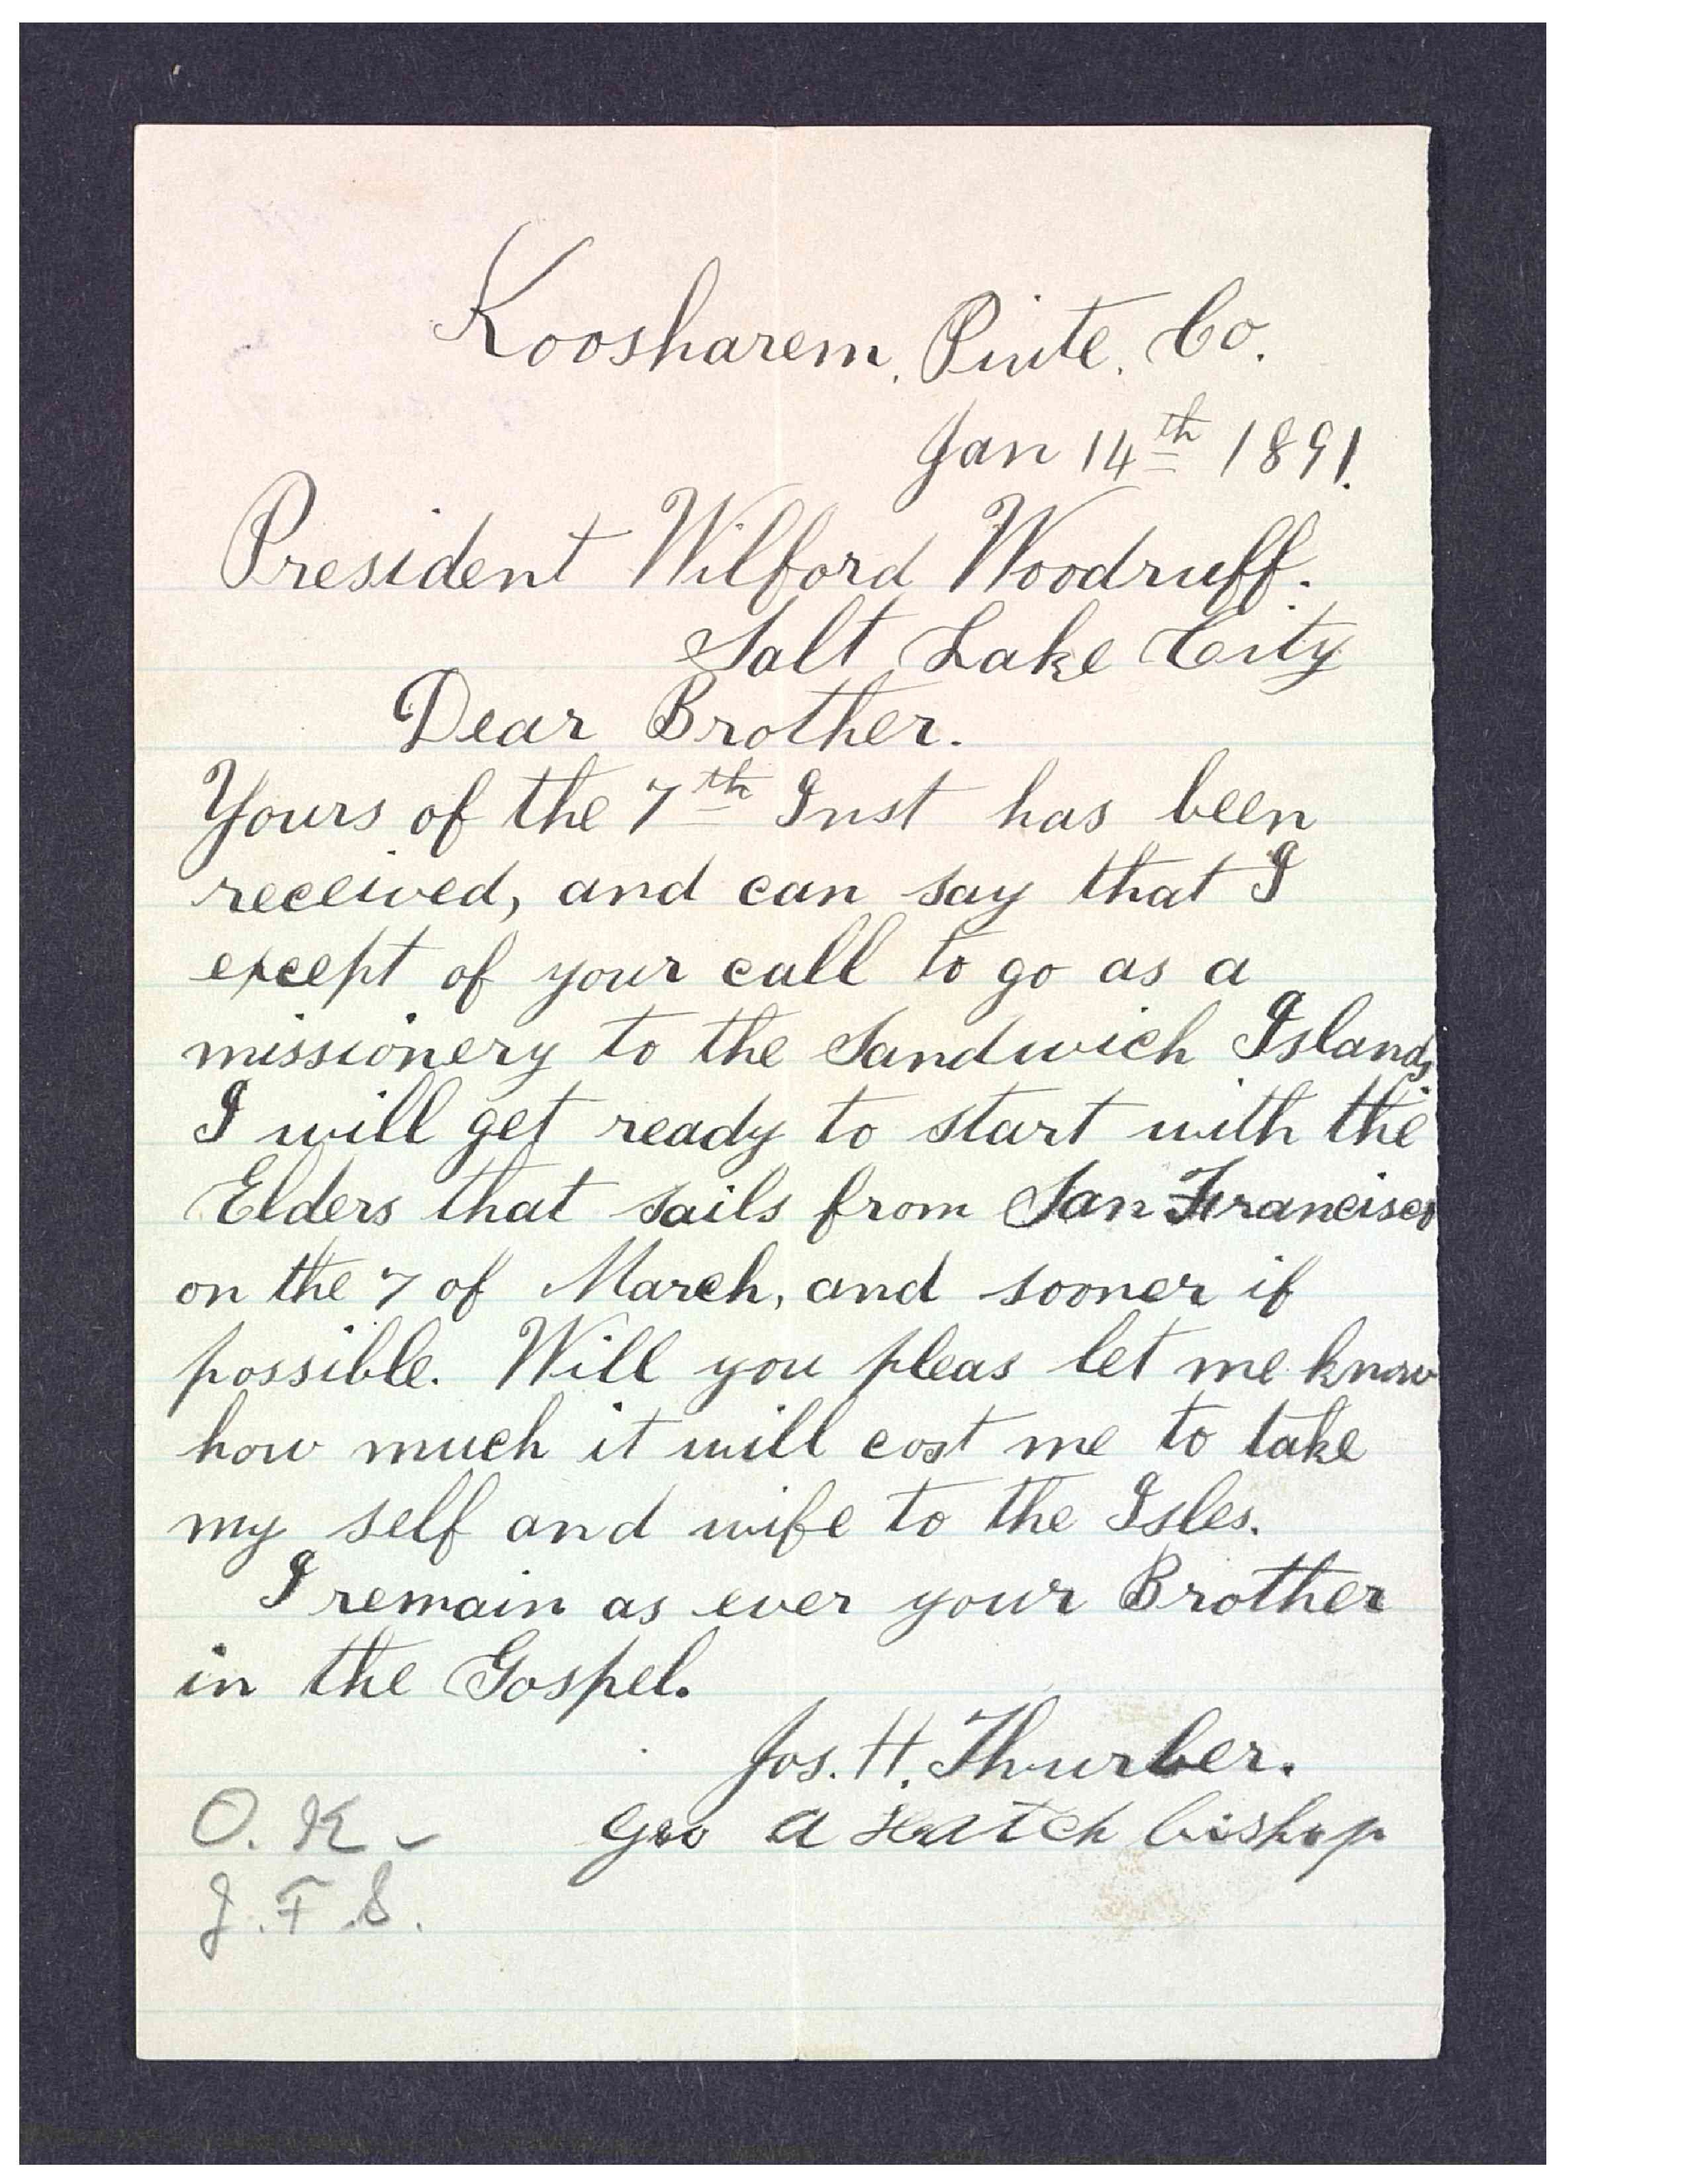 Koosharem, Piute, Co.
Jan 14th 1891.
President Wilford Woodruff.
Salt Lake City
Dear Brother.
Yours of the 7th Inst has been
received, and can say that I
except of your call to go as a
missionery to the Sandwich Islands,
I will get ready to start with the
Elders that sails from San Francisco
on the 7 of March, and sooner if
possible. Will you pleas let me know
how much it will cost me to take
my self and wife to the Isles.
I remain as ever your Brother
in the Gospel.
Jos. H. Thurber.
Geo a Hatch bishop
O. K.
J. F. S.